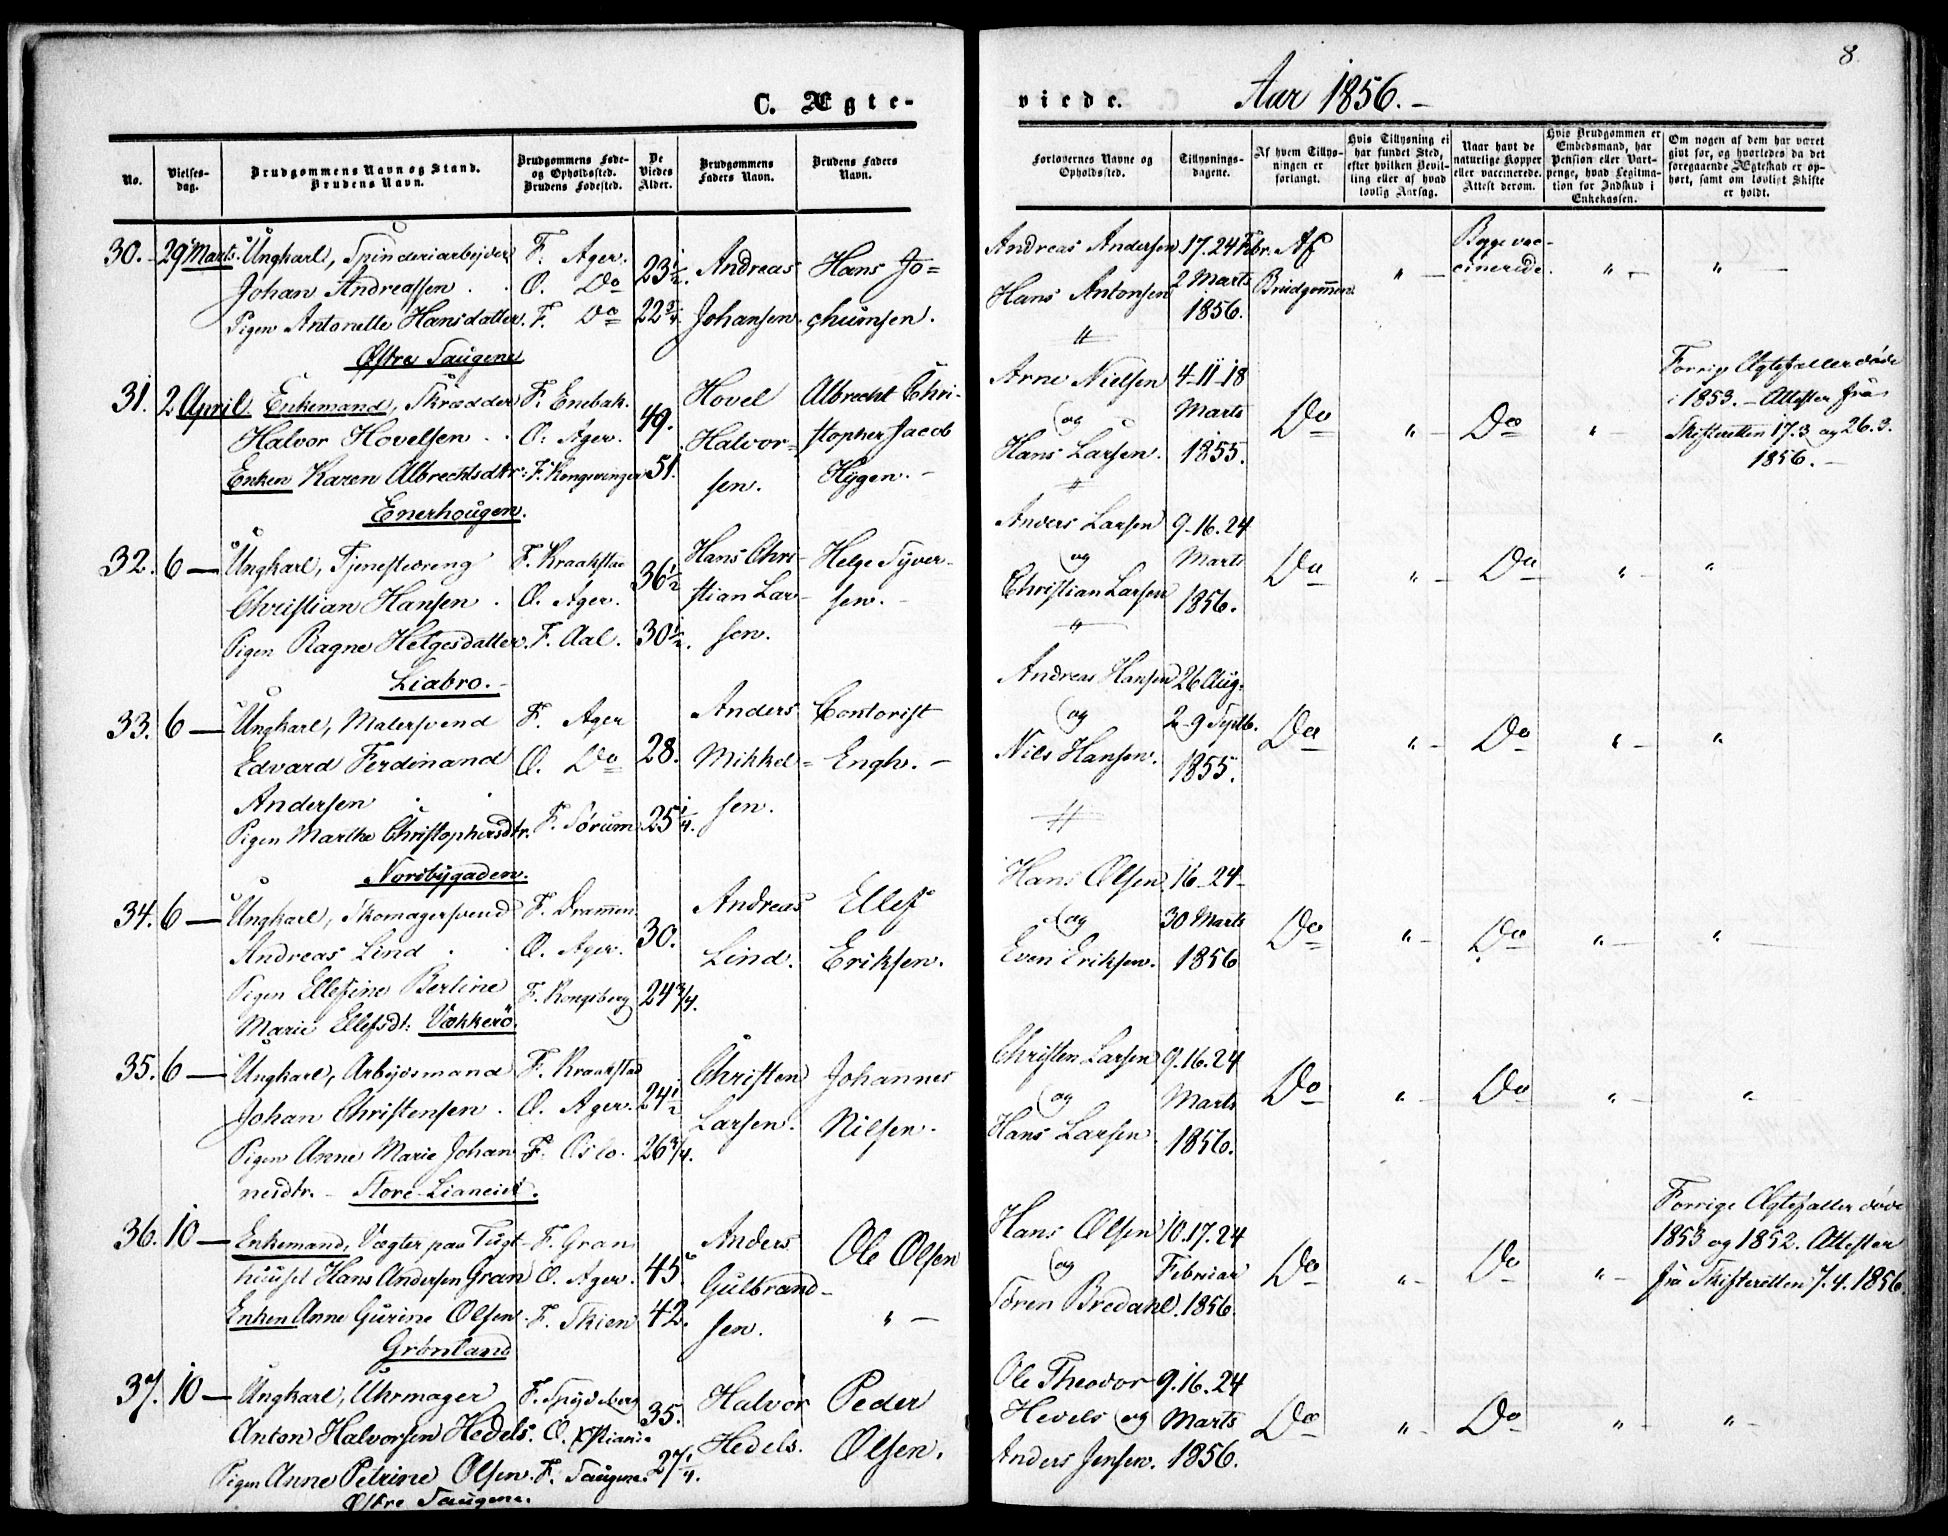 8
C. Ægte-
viede.
Aar 1856.-
No.
Vielses-
dag.
Brudgommens Navn og Stand.
Brudens Navn.
Brudgommens Føde-
og Opholdssted.
Brudens Fødested.
De
Viedes
Alder.
Brudgommens
Faders Navn.
Brudens Faders
Navn.
Forlovernes Navne og
Opholdssted.
Tillysnings-
dagene.
Af hvem Tillys-
ningen er
forlangt.
Hvis Tillysning ei
har fundet Sted,
efter hvilken Bevil-
ling eller af hvad
lovlig Aarsag.
Naar havt de
naturlige Kopper
eller vaccinerede.
Attest derom.
Hvis Brudgommen er
Embedsmand, har
Pension eller Vart-
penge, hvad Legitima-
tion for Indskud i
Enkekassen.
Om nogen af dem har været
gift før, og hvorledes da det
foregaaende Ægteskab er op-
hørt, samt om lovligt Skifte
er holdt.
30. 29 Marts. Ungkarl, Spinderiarbeider F. Ager. 23½. Andreas Hans Jo=
Johan Andreassen . O. Do
Pigen Antonette Hansdatter. F. Do 22¾. Johansen. chumsen.
Østre Saugene
Andreas Andersen 17. 24 Febr. Af Begge vac-
Hans Antonsen 2 Marts Brudgommen " - cinerede. " - " -
1856.
"
31. 2 April. Enkemand, Skrædder F. Enebak. 49. Hovel Albrecht Chri-
Halvor Hovelsen . . O. Ager. Halvor= stopher Jacob
Enken Karen Albrechtsdtr: F. Kongsvinger 51. sen. Hygen. -
Enerhougen.
Arne Nielsen 4-11-18 Forrige Ægtefæller døde
og Marts Do " - Do " - i 1853. - Attester fra
Hans Larsen. 1855. Skifteretten 17.3 og 26.3.
" 1856. -
32. 6 - Ungkarl, Tjenestedreng F. Kraakstad 36½ Hans Chri- Helge Syver-
Christian Hansen . O. Ager. stian Lar- sen. -
Pigen Ragne Helgesdatter. F. Aal. 30½. sen.
Liabro. -
Anders Larsen 9.16.24
og Marts Do " - Do " - "
Christian Larsen 1856.
"
33. 6 - Ungkarl, Malersvend F. Ager 28. Anders Contorist
Edvard Ferdinand O. Do Mikkel= Engh. -
Andersen . . sen.
Pigen Marthe Christophersdtr. F. Sørum 25¼.
Norbygaden.
Andreas Hansen 26 Aug.
og 2-9 Septb. Do " - Do " - "
Nils Hansen. 1855.
"
34. 6 - Ungkarl, Skomagersvend F. Drammen 30. Andreas Ellef
Andreas Lind . . O. Ager. Lind. Eriksen.
Pigen Ellefine Berline F. Kongsberg 24¾.
Marie Ellefsdt: Vækkerø.
Hans Olsen 16-24-
og 30 Marts Do " - Do " - " -
Even Eriksen. 1856
35. 6 - Ungkarl, Arbeidsmand F. Kraakstad 24½ Christen Johannes
Johan Christensen . O. Ager. Larsen. Nilsen.
Pigen Anne Marie Johan F. Oslo. 26¾.
nesdtr. - Store-Lianeiet.
Christen Larsen 9.16.24
og Marts Do " - Do " - " -
Hans Larsen 1856.
36. 10 - Enkemand, Vægter paa Tugt- F. Gran 45. Anders Ole Olsen
huuset Hans Andersen Gran O. Ager. Gulbrand-
Enken Anne Gurine Olsen F. Skien 42. sen. " -
Grønland
Hans Olsen 10.17.24 Forrige Ægtefæller døde
og Februar Do " - Do " - 1853 og 1852. Attester
Søren Bredahl. 1856. fra Skifteretten 7.4.1856.
37. 10 - Ungkarl, Uhrmager F. Spydeberg 35. Halvor Peder
Anton Halvorsen Hedels. O. Xstiania Hedels. Olsen.
Pigen Anne Petrine Olsen. F. Saugene. 27¼.
Østre Saugene.
Ole Theodor 9.16.24
Hedels og Marts Do " - Do " - " -
Anders Jensen. 1856.